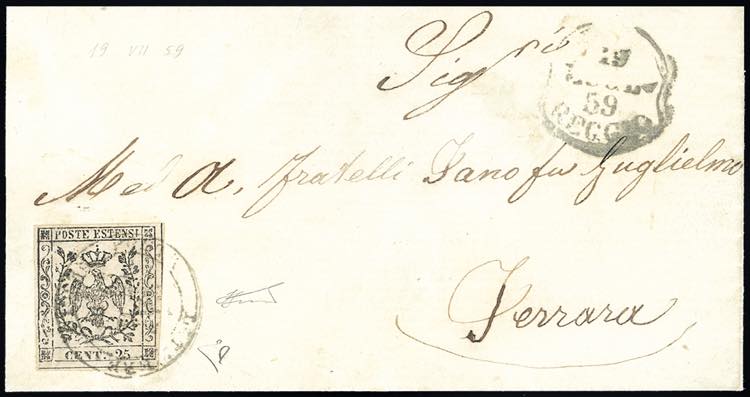 19 VII 59
Sig.ri
19
LUGL
59
REGGIO
Med A. Fratelli Sano fu Guglielmo
Ferrara
POSTE ESTENSI
CENT. 25